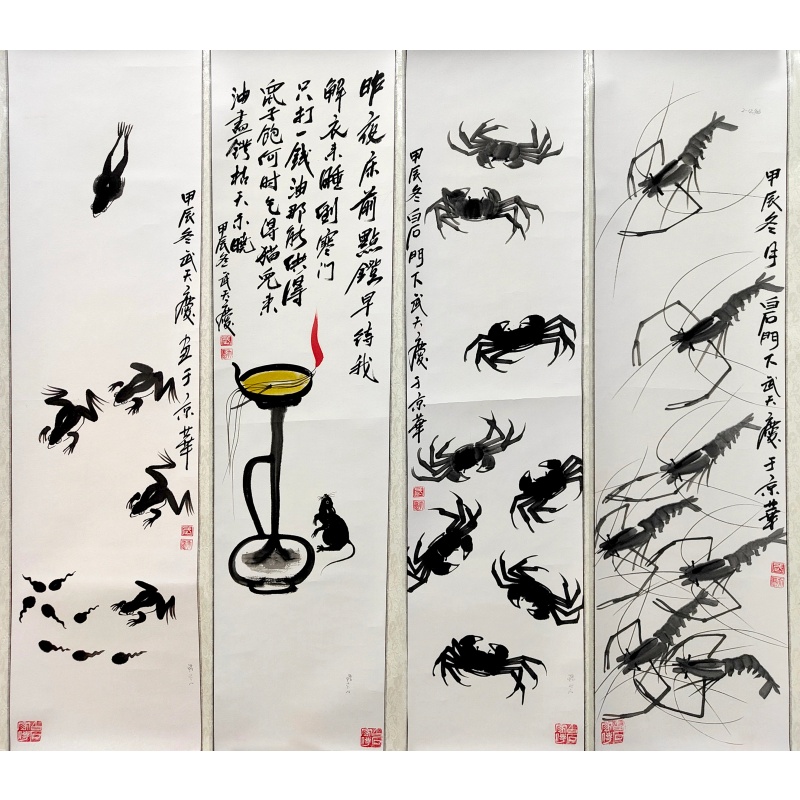 甲辰冬武天慶画于京華
昨夜床前點鐙早待我
解衣来睡倒寒门
只打一錢油那能供得
鼠子飽何时乞得猫兒来
油盡鐙枯天不曉
甲辰冬武天慶
甲辰冬白石門下武天慶于京華
甲辰冬月白石門下武天慶于京華